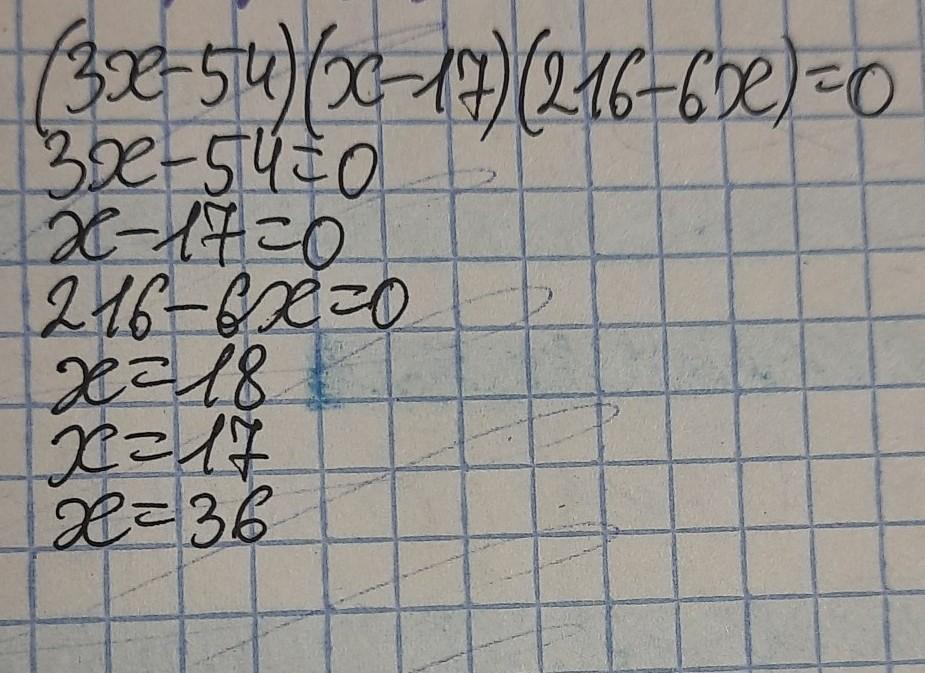 (3x-54)(x-17)(216-6x)=0
3x-54=0
x-17=0
216-6x=0
x=18
x=17
x=36